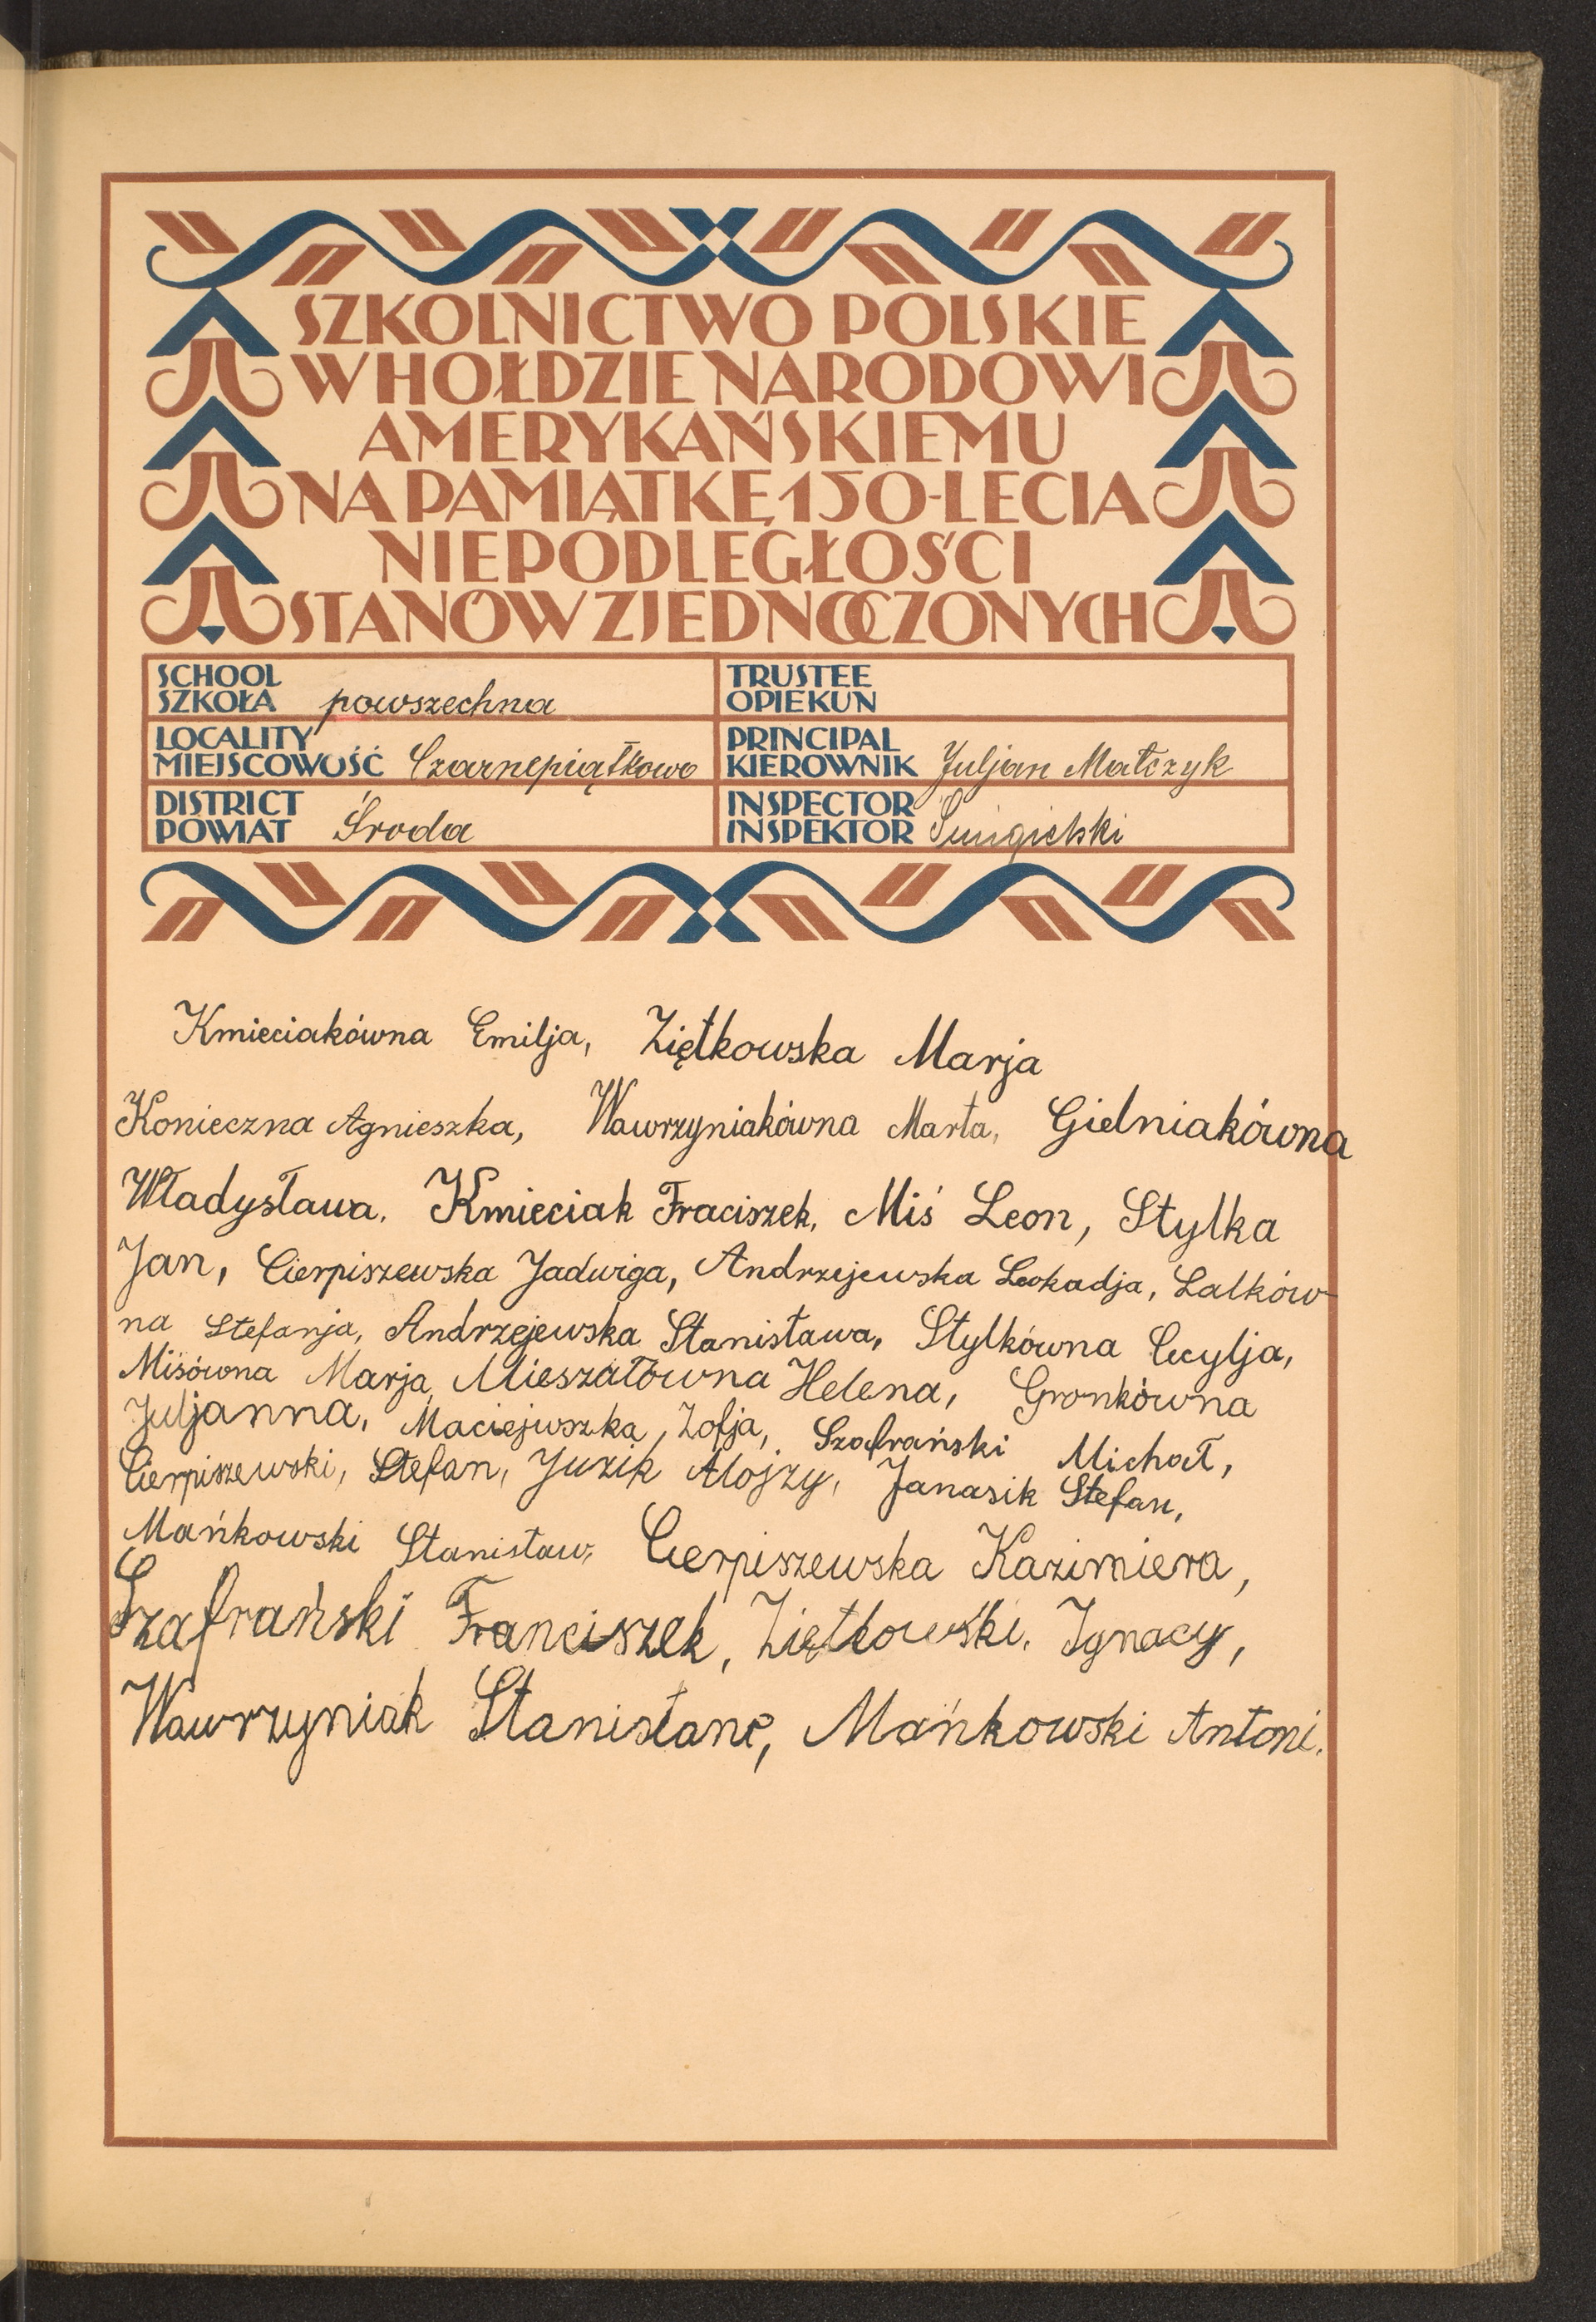 SZKOLNICTWO POLSKIE
W HOŁDZIE NARODOWI
AMERYKAŃSKIEMU
NA PAMIĄTKĘ 150-LECIA
NIEPODLEGŁOŚCI
STANÓW ZJEDNOCZONYCH
SCHOOL
SZKOŁA powszechna
TRUSTEE
OPIEKUN
LOCALITY
MIEJSCOWOŚĆ Czarnepiątkowo
PRINCIPAL
KIEROWNIK Juljan Matczyk
DISTRICT
POWIAT Środa
INSPECTOR
INSPEKTOR
Kmieciakówna Emilja, Ziętkowska Marja
Konieczna Agnieszka, Wawrzyniakówna Marta, Gielniakówna
Władysława. Kmieciak Fraciszek, Miś Leon, Stylka
Jan, Cierpiszewska Jadwiga, Andrzejewska Leokadja, Lalków-
na Stefanja, Andrzejewska Stanisława, Stylkówna Cecylja,
Misówna Marja, Mieszałówna Helena, Gronkówna
Juljanna, Maciejwszka, Zofja, Szafrański Michał,
Cierpiszewski, Stefan, Juzik Alojzy, Janasik Stefan,
Mańkowski Stanisław, Cierpiszewska Kazimiera,
Szafrański Franciszek, Ziętkowski, Ignacy,
Wawrzyniak Stanisław, Mańkowski Antoni.